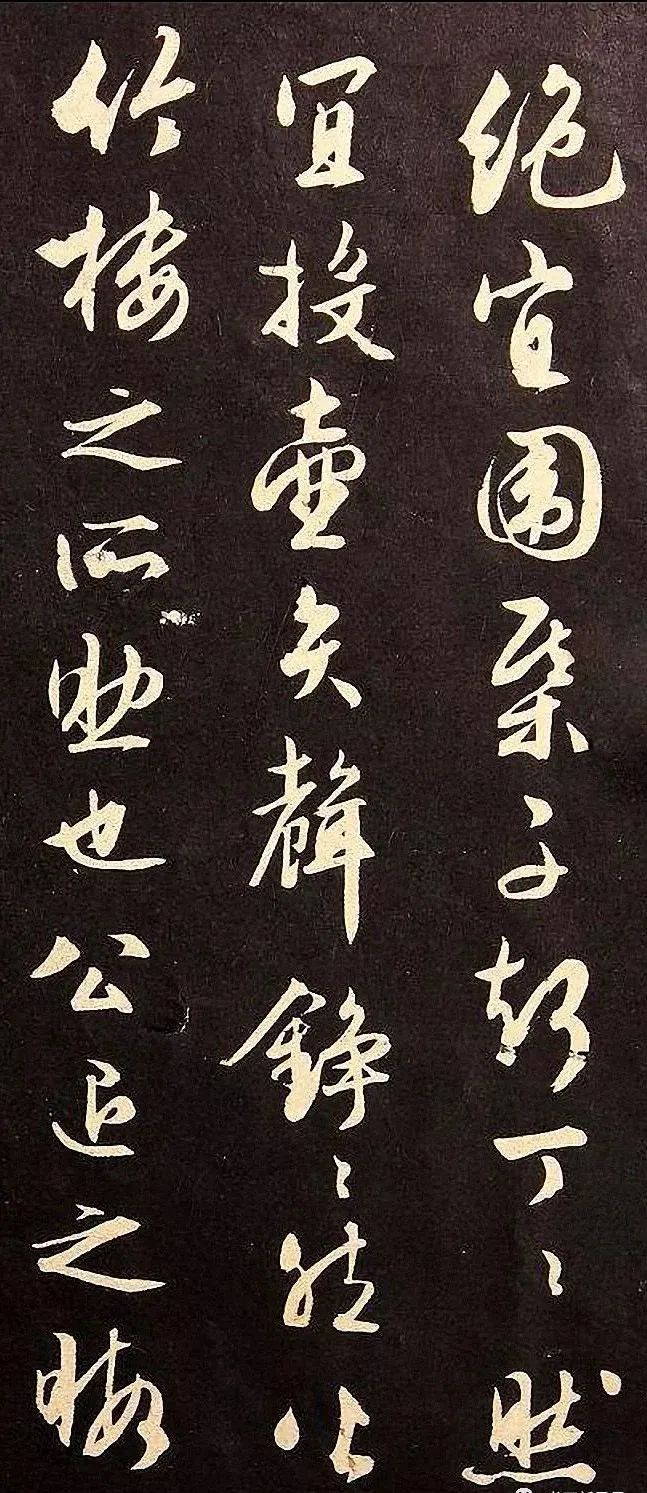 絶宜围棊子聲丁〻然
宜投壺矢聲錚〻然皆
竹樓之所助也公退之暇